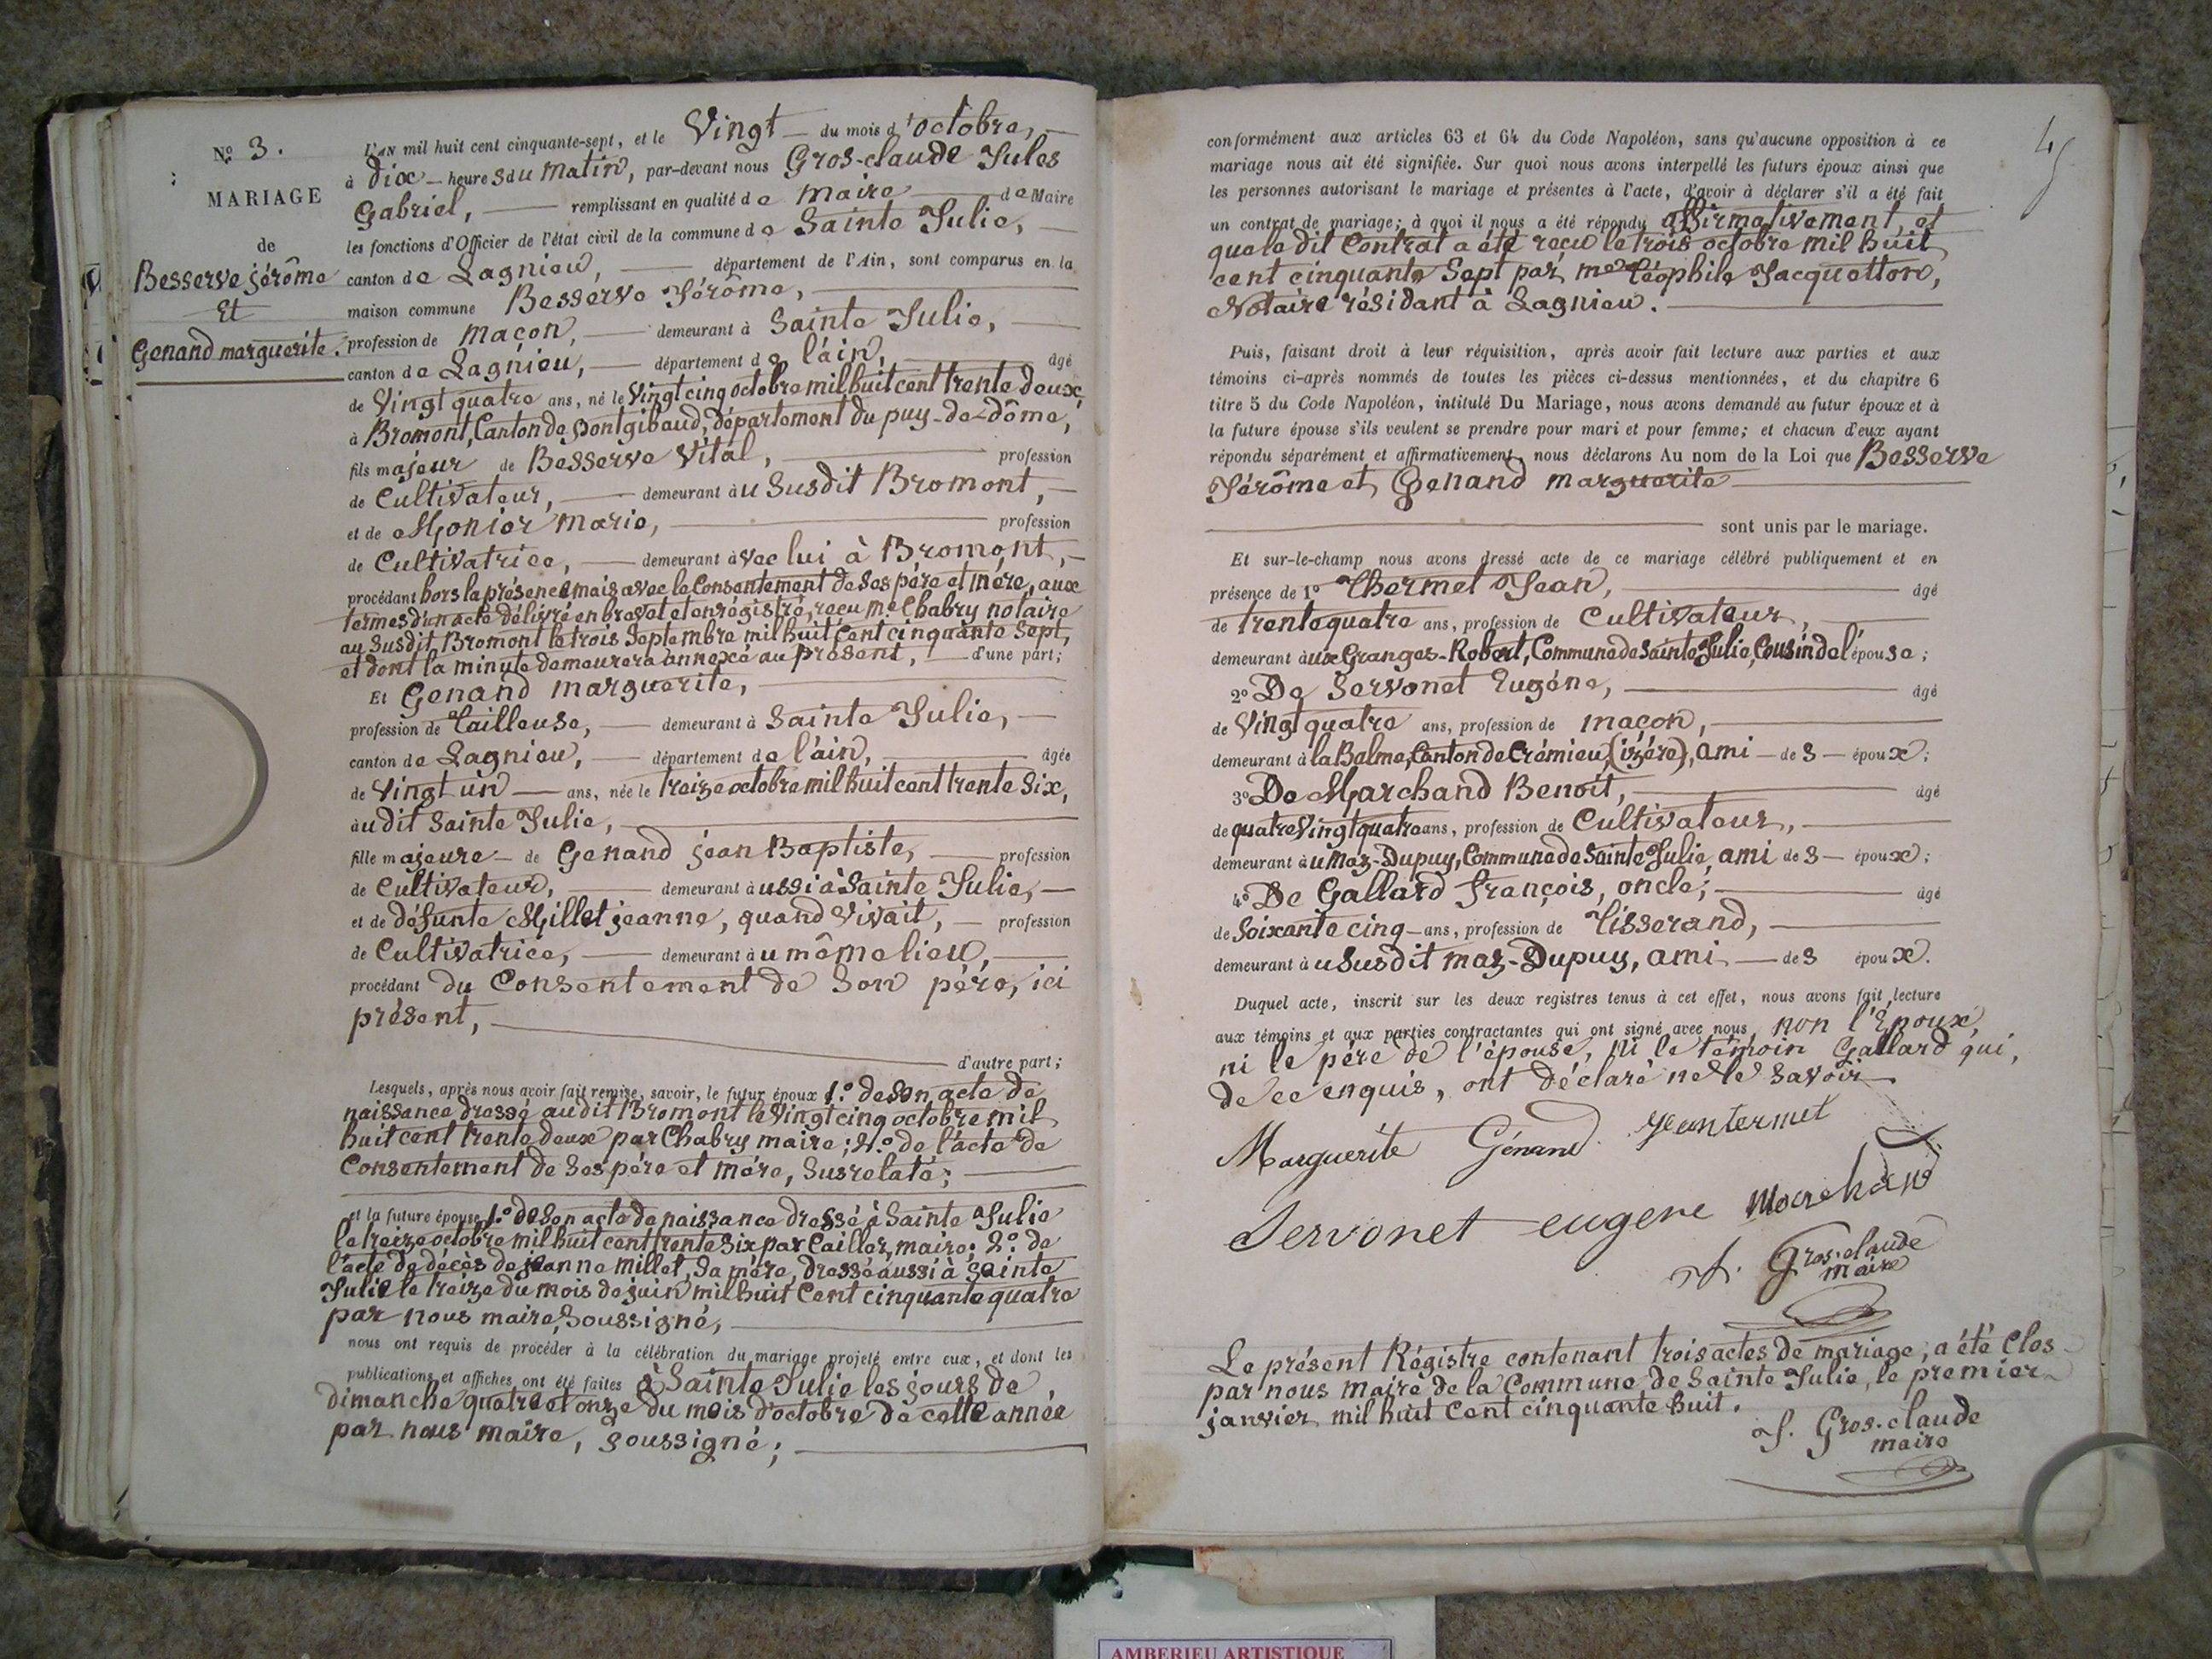 No 3.
MARIAGE
de
Besserve jérôme
Et
Genand marguerite.
L'AN mil huit cent cinquante-sept, et le Vingt du mois d'octobre,
à dix heures du matin, par-devant nous Gros-claude Jules
Gabriel, remplissant en qualité de maire de Maire
les fonctions d'Officier de l'état civil de la commune de Sainte Julie,
canton de Lagnieu, département de l'Ain, sont comparus en la
maison commune Besserve Jérôme,
profession de maçon, demeurant à Sainte Julie,
canton de Lagnieu, département de l'ain, âgé
de Vingt quatre ans, né le Vingt cinq octobre mil huit cent trente deux,
à Bromont, Canton de pontgibaud, département du puy-de-dôme,
fils majeur de Besserve Vital, profession
de Cultivateur, demeurant au susdit Bromont,
et de Monier marie, profession
de Cultivatrice, demeurant avec lui à Bromont,
procédant hors la présence mais avec le Consentement de ses père et mère, aux
termes d'un acte délivré en brevet et enrégistré, reçu me Chabry notaire
au susdit Bromont le trois Septembre mil huit Cent cinquante Sept,
et dont la minute demeurera annexé au présent, d'une part;
Et Genand marguerite,
profession de Tailleuse, demeurant à Sainte Julie,
canton de Lagnieu, département de l'ain, âgée
de Vingt un ans, née le treize octobre mil huit cent trente Six,
au dit Sainte Julie,
fille majeure de Genand jean Baptiste, profession
de Cultivateur, demeurant aussi à Sainte Julie,
et de défunte Millet jeanne, quand Vivait, profession
de Cultivatrice, demeurant au même lieu,
procédant du Consentement de Son père, ici
présent,
d'autre part;
Lesquels, après nous avoir fait remise, savoir, le futur époux 1.o de son acte de
naissance dressé au dit Bromont le Vingt cinq octobre mil
huit cent trente deux par Chabry maire; 2.o de l'acte de
Consentement de Ses père et mère, Susrelaté;
et la future épouse 1.o de Son acte de naissance dressé à Sainte Julie
le treize octobre mil huit cent trente Six par Caillor, maire; 2.o de
l'acte de décès de jeanne millet, Sa mère, dressé aussi à Sainte
Julie le treize du mois de juin mil huit Cent cinquante quatre
par nous maire, Soussigné,
nous ont requis de procéder à la célébration du mariage projeté entre eux, et dont les
publications et affiches ont été faites à Sainte Julie les jours de
dimanche quatre et onze du mois d'octobre de cette année
par nous maire, soussigné;
45
conformément aux articles 63 et 64 du Code Napoléon, sans qu'aucune opposition à ce
mariage nous ait été signifiée. Sur quoi nous avons interpellé les futurs époux ainsi que
les personnes autorisant le mariage et présentes à l'acte, d'avoir à déclarer s'il a été fait
un contrat de mariage; à quoi il nous a été répondu affirmativement, et
que le dit Contrat a été reçu le trois octobre mil huit
cent cinquante Sept par me Téophile Jacquetton,
Notaire résidant à Lagnieu.
Puis, faisant droit à leur réquisition, après avoir fait lecture aux parties et aux
témoins ci-après nommés de toutes les pièces ci-dessus mentionnées, et du chapitre 6
titre 5 du Code Napoléon, intitulé Du Mariage, nous avons demandé au futur époux et à
la future épouse s'ils veulent se prendre pour mari et pour femme; et chacun d'eux ayant
répondu séparément et affirmativement, nous déclarons Au nom de la Loi que Besserve
Jérôme et Genand marguerite
sont unis par le mariage.
Et sur-le-champ nous avons dressé acte de ce mariage célébré publiquement et en
présence de 1o Thermet Jean, âgé
de trente quatre ans, profession de Cultivateur,
demeurant aux Granges-Robert, Commune de Sainte Julie, Cousin de l'épouse;
2o De Servonet Eugène, âgé
de Vingt quatre ans, profession de maçon,
demeurant à la Balme, Canton de Crémieu, (izére), ami des époux;
3o De Marchand Benoît, âgé
de quatre Vingt quatre ans, profession de Cultivateur,
demeurant au maz-Dupuy, Commune de Sainte Julie, ami des époux;
4o De Gallard françois, oncle; âgé
de Soixante cinq ans, profession de Tisserand,
demeurant au susdit maz-Dupuy, ami des époux.
Duquel acte, inscrit sur les deux registres tenus à cet effet, nous avons fait lecture
aux témoins et aux parties contractantes qui ont signé avec nous, non l'Époux,
ni le père de l'épouse, ni le témoin Gallard qui,
de ce enquis, ont déclaré ne le savoir.
Marguerite Génand Jean termet
Servonet eugene Marchand
J. Gros-claude
maire
Le présent Régistre contenant trois actes de mariage, a été Clos
par nous maire de la Commune de Sainte Julie, le premier
janvier mil huit Cent cinquante huit.
J. Gros-claude
maire
AMBERIEU ARTISTIQUE